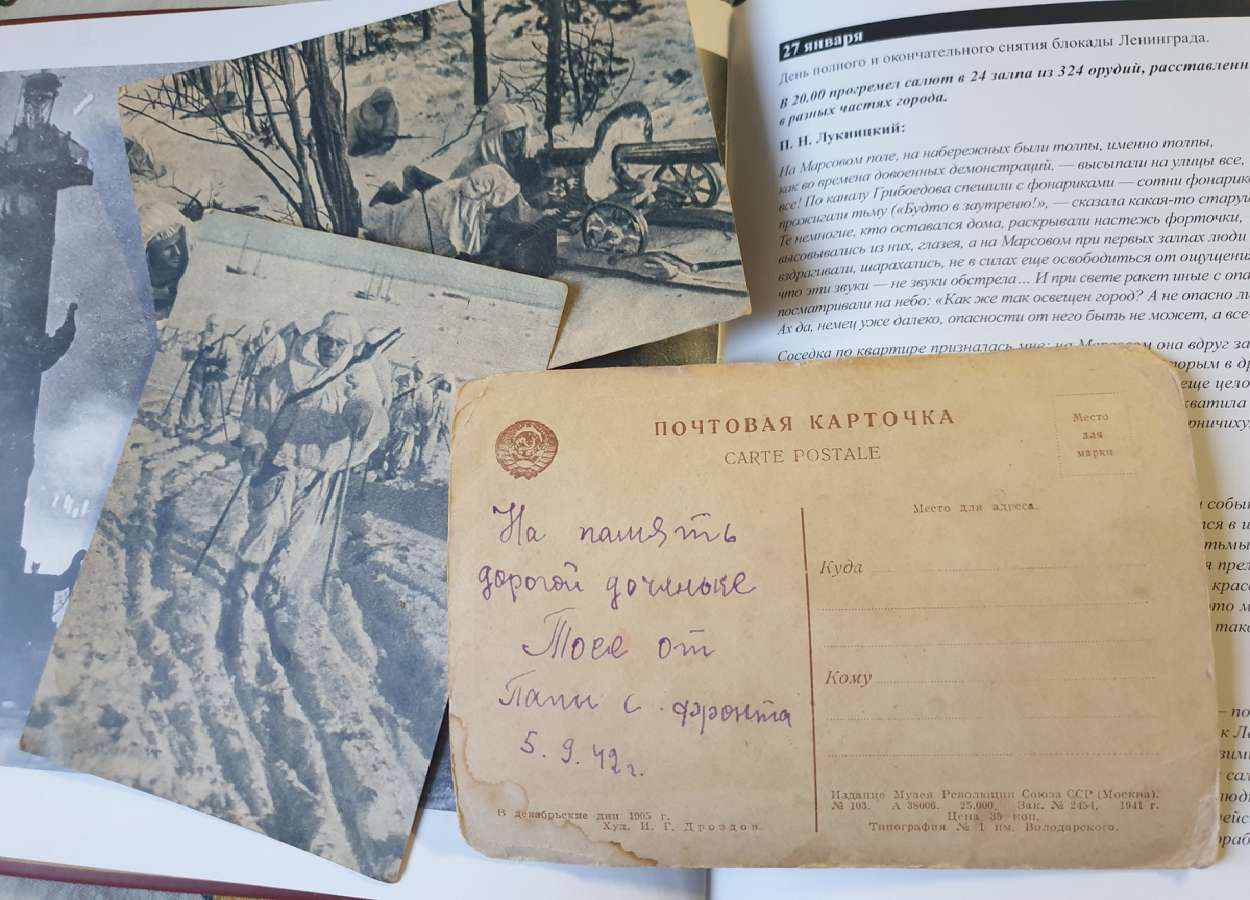 27 января
День полного и окончательного снятия блокады Ленинграда.
В 20.00 прогремел салют в 24 залпа из 324 орудий, расставленн
в разных частях города.
П. Н. Лукницкий:
На Марсовом поле, на набережных были толпы, именно толпы,
как во времена довоенных демонстраций, — высыпали на улицы все,
все! По каналу Грибоедова спешили с фонариками — сотни фонарик
прожигали тьму («Будто в заутреню!», — сказала какая-то стару
Те немногие, кто оставался дома, раскрывали настежь форточки,
высовывались из них, глазея, а на Марсовом при первых залпах люди
вздрагивали, шарахались, не в силах еще освободиться от ощущени
что эти звуки — не звуки обстрела... И при свете ракет иные с опа
посматривали на небо: «Как же так освещен город? А не опасно ли
Ах да, немец уже далеко, опасности от него быть не может, а все-
Соседка по квартире призналась мне: на Марсовом она вдруг за
орым в др
еще цело
хватила
рничиху,
ПОЧТОВАЯ КАРТОЧКА
CARTE POSTALE
Место
для
марки
На память
дорогой дочяньке
Тосе от
Папы с фронта
5.9.42 г.
Место для адреса.
Куда
Кому
В декабрьские дни 1905 г.
Худ. И. Г. Дроздов.
Издание Музея Революции Союза ССР (Москва).
№ 103. А 38006. 25.000. Зак. № 2454. 1941 г.
Цена 35 коп.
Типография № 1 им. Володарского.
собы
ся в и
тьмы
я прел
красо
то м
тако
— по
к Ла
зим
сал
люд
ейс
ораб